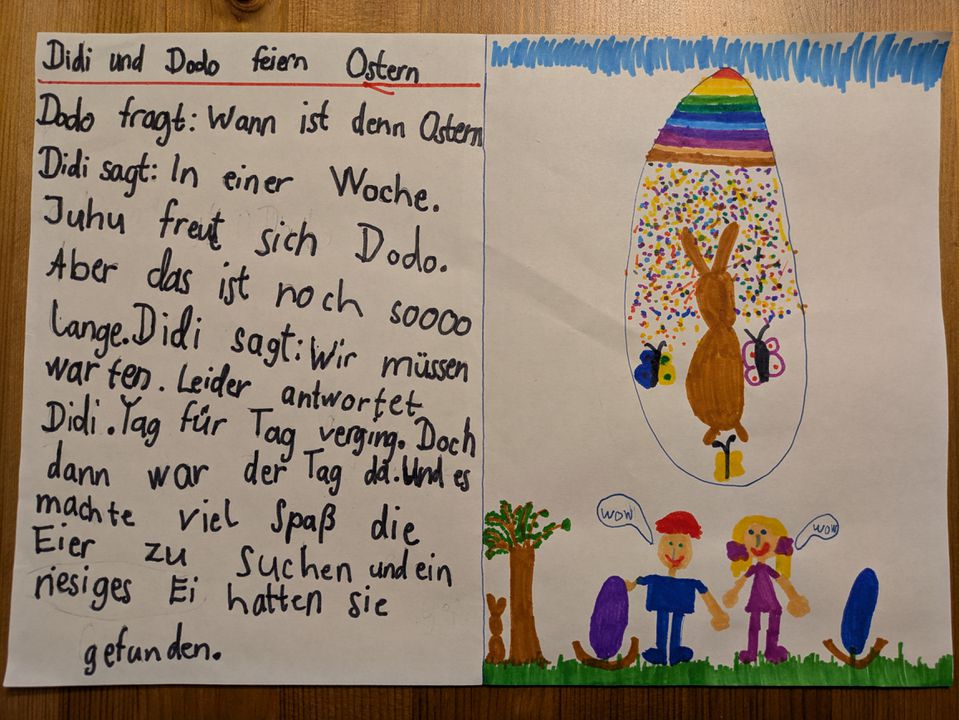 Didi und Dodo feiern Ostern
Dodo fragt: Wann ist denn Ostern
Didi sagt: In einer Woche.
Juhu freut sich Dodo.
Aber das ist noch soooo
lange. Didi sagt: Wir müssen
warten. Leider antwortet
Didi. Tag für Tag verging. Doch
dann war der Tag da. Und es
machte viel Spaß die
Eier zu Suchen und ein
riesiges Ei hatten sie
gefunden.
WOW
WOW